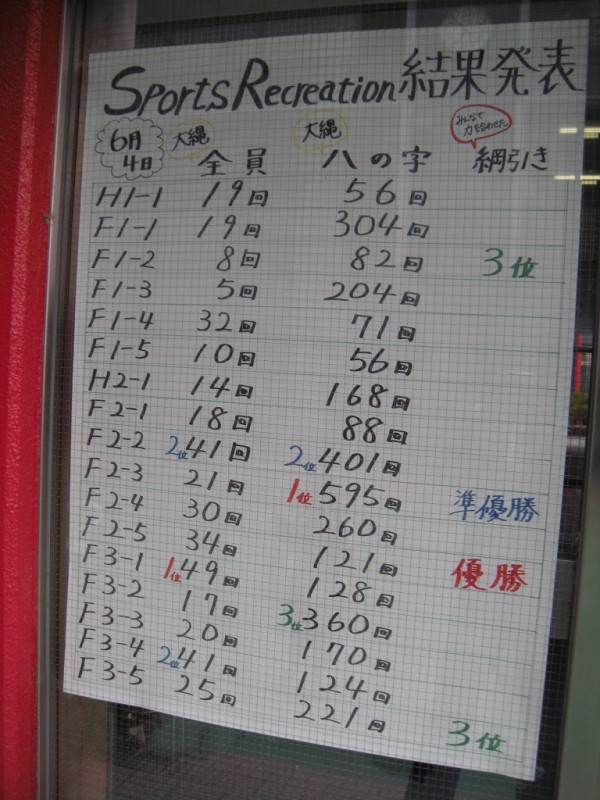 Sports Recreation 結果発表
6月4日 大縄 全員 大縄 八の字 みんなで力を合わせた 綱引き
H1-1 19回 56回
F1-1 19回 304回
F1-2 8回 82回 3位
F1-3 5回 204回
F1-4 32回 71回
F1-5 10回 56回
H2-1 14回 168回
F2-1 18回 88回
F2-2 2位 41回 2位 401回
F2-3 21回 1位 595回 準優勝
F2-4 30回 260回
F2-5 34回 121回 優勝
F3-1 1位 49回 128回
F3-2 17回 3位 360回
F3-3 20回 170回
F3-4 2位 41回 124回
F3-5 25回 221回 3位